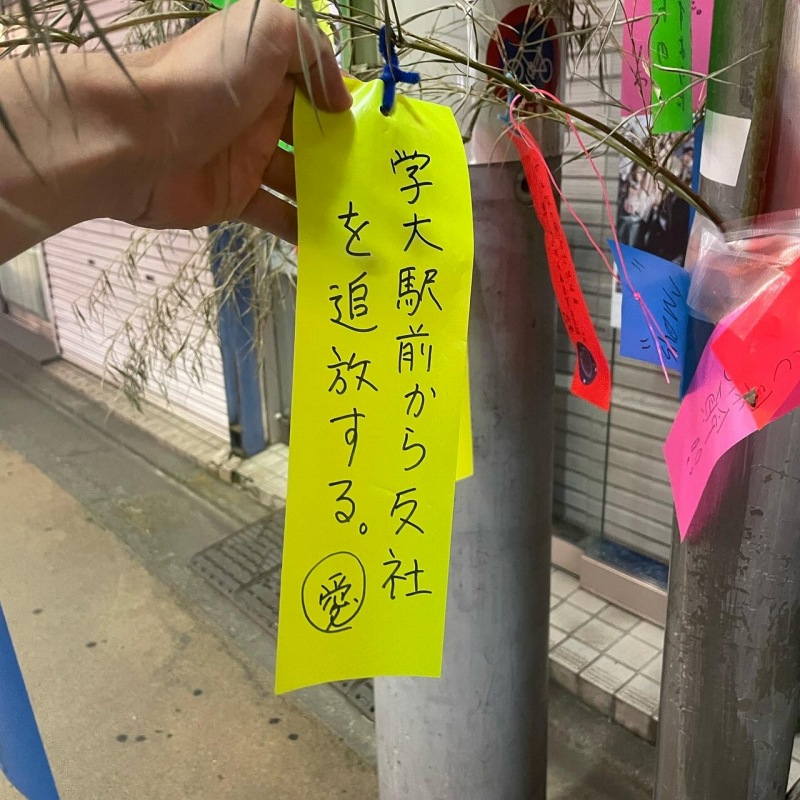 学大駅前から反社
を追放する。
愛